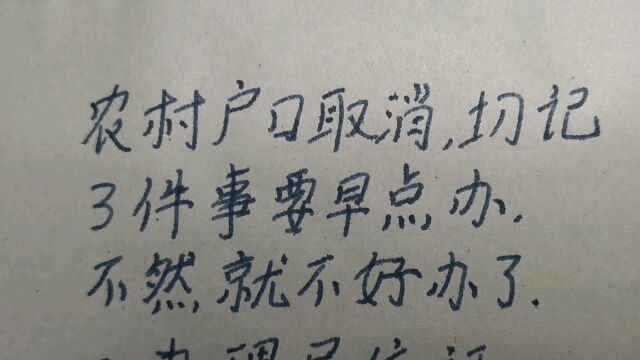 农村户口取消,切记
3件事要早点办.
不然就不好办了.